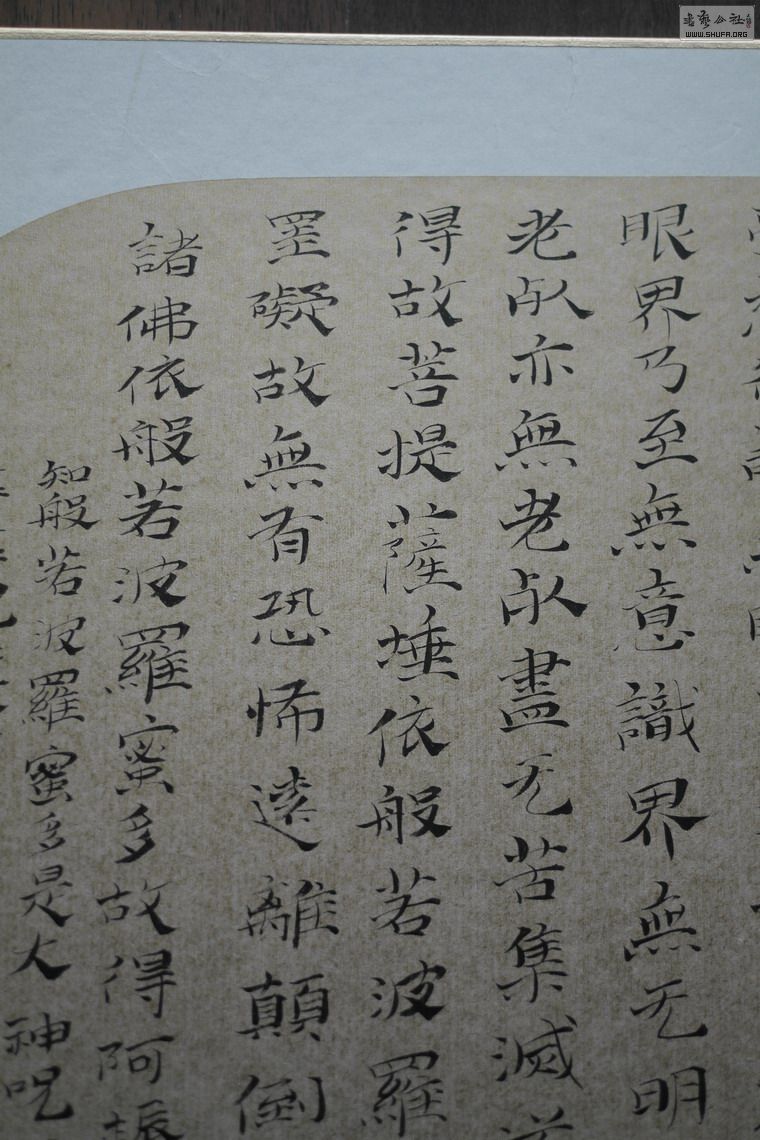 眼界乃至無意識界無无明
老死亦無老死盡无苦集滅道
得故菩提薩埵依般若波羅
罣礙故無有恐怖遠離顛倒
諸佛依般若波羅蜜多故得阿
知般若波羅蜜多是大神呪
WWW.SHUFA.ORG